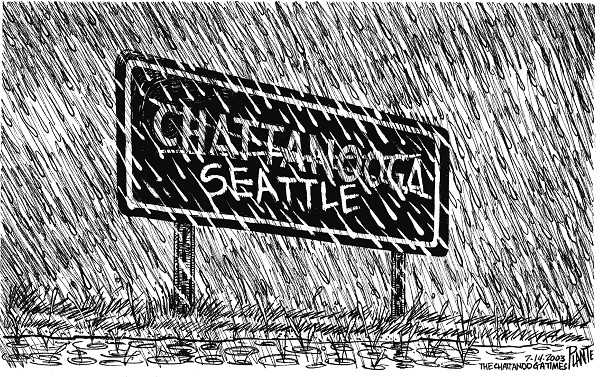 CHATTANOOGA
SEATTLE
7-14-2003
THE CHATTANOOGA TIMES
PLANTE